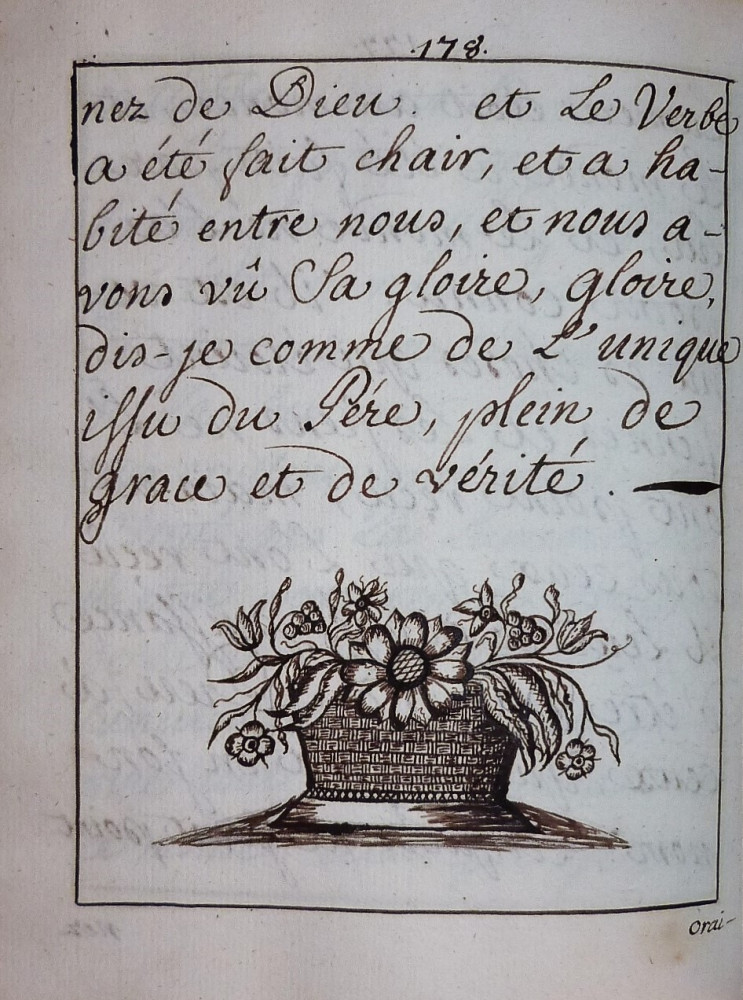 .178.
nez de Dieu. et Le Verbe
a été fait chair, et a ha-
bité entre nous, et nous a-
vons vû Sa gloire, gloire,
dis-je comme de L'unique
issu du Pére, plein de
grace et de vérité.
Orai-